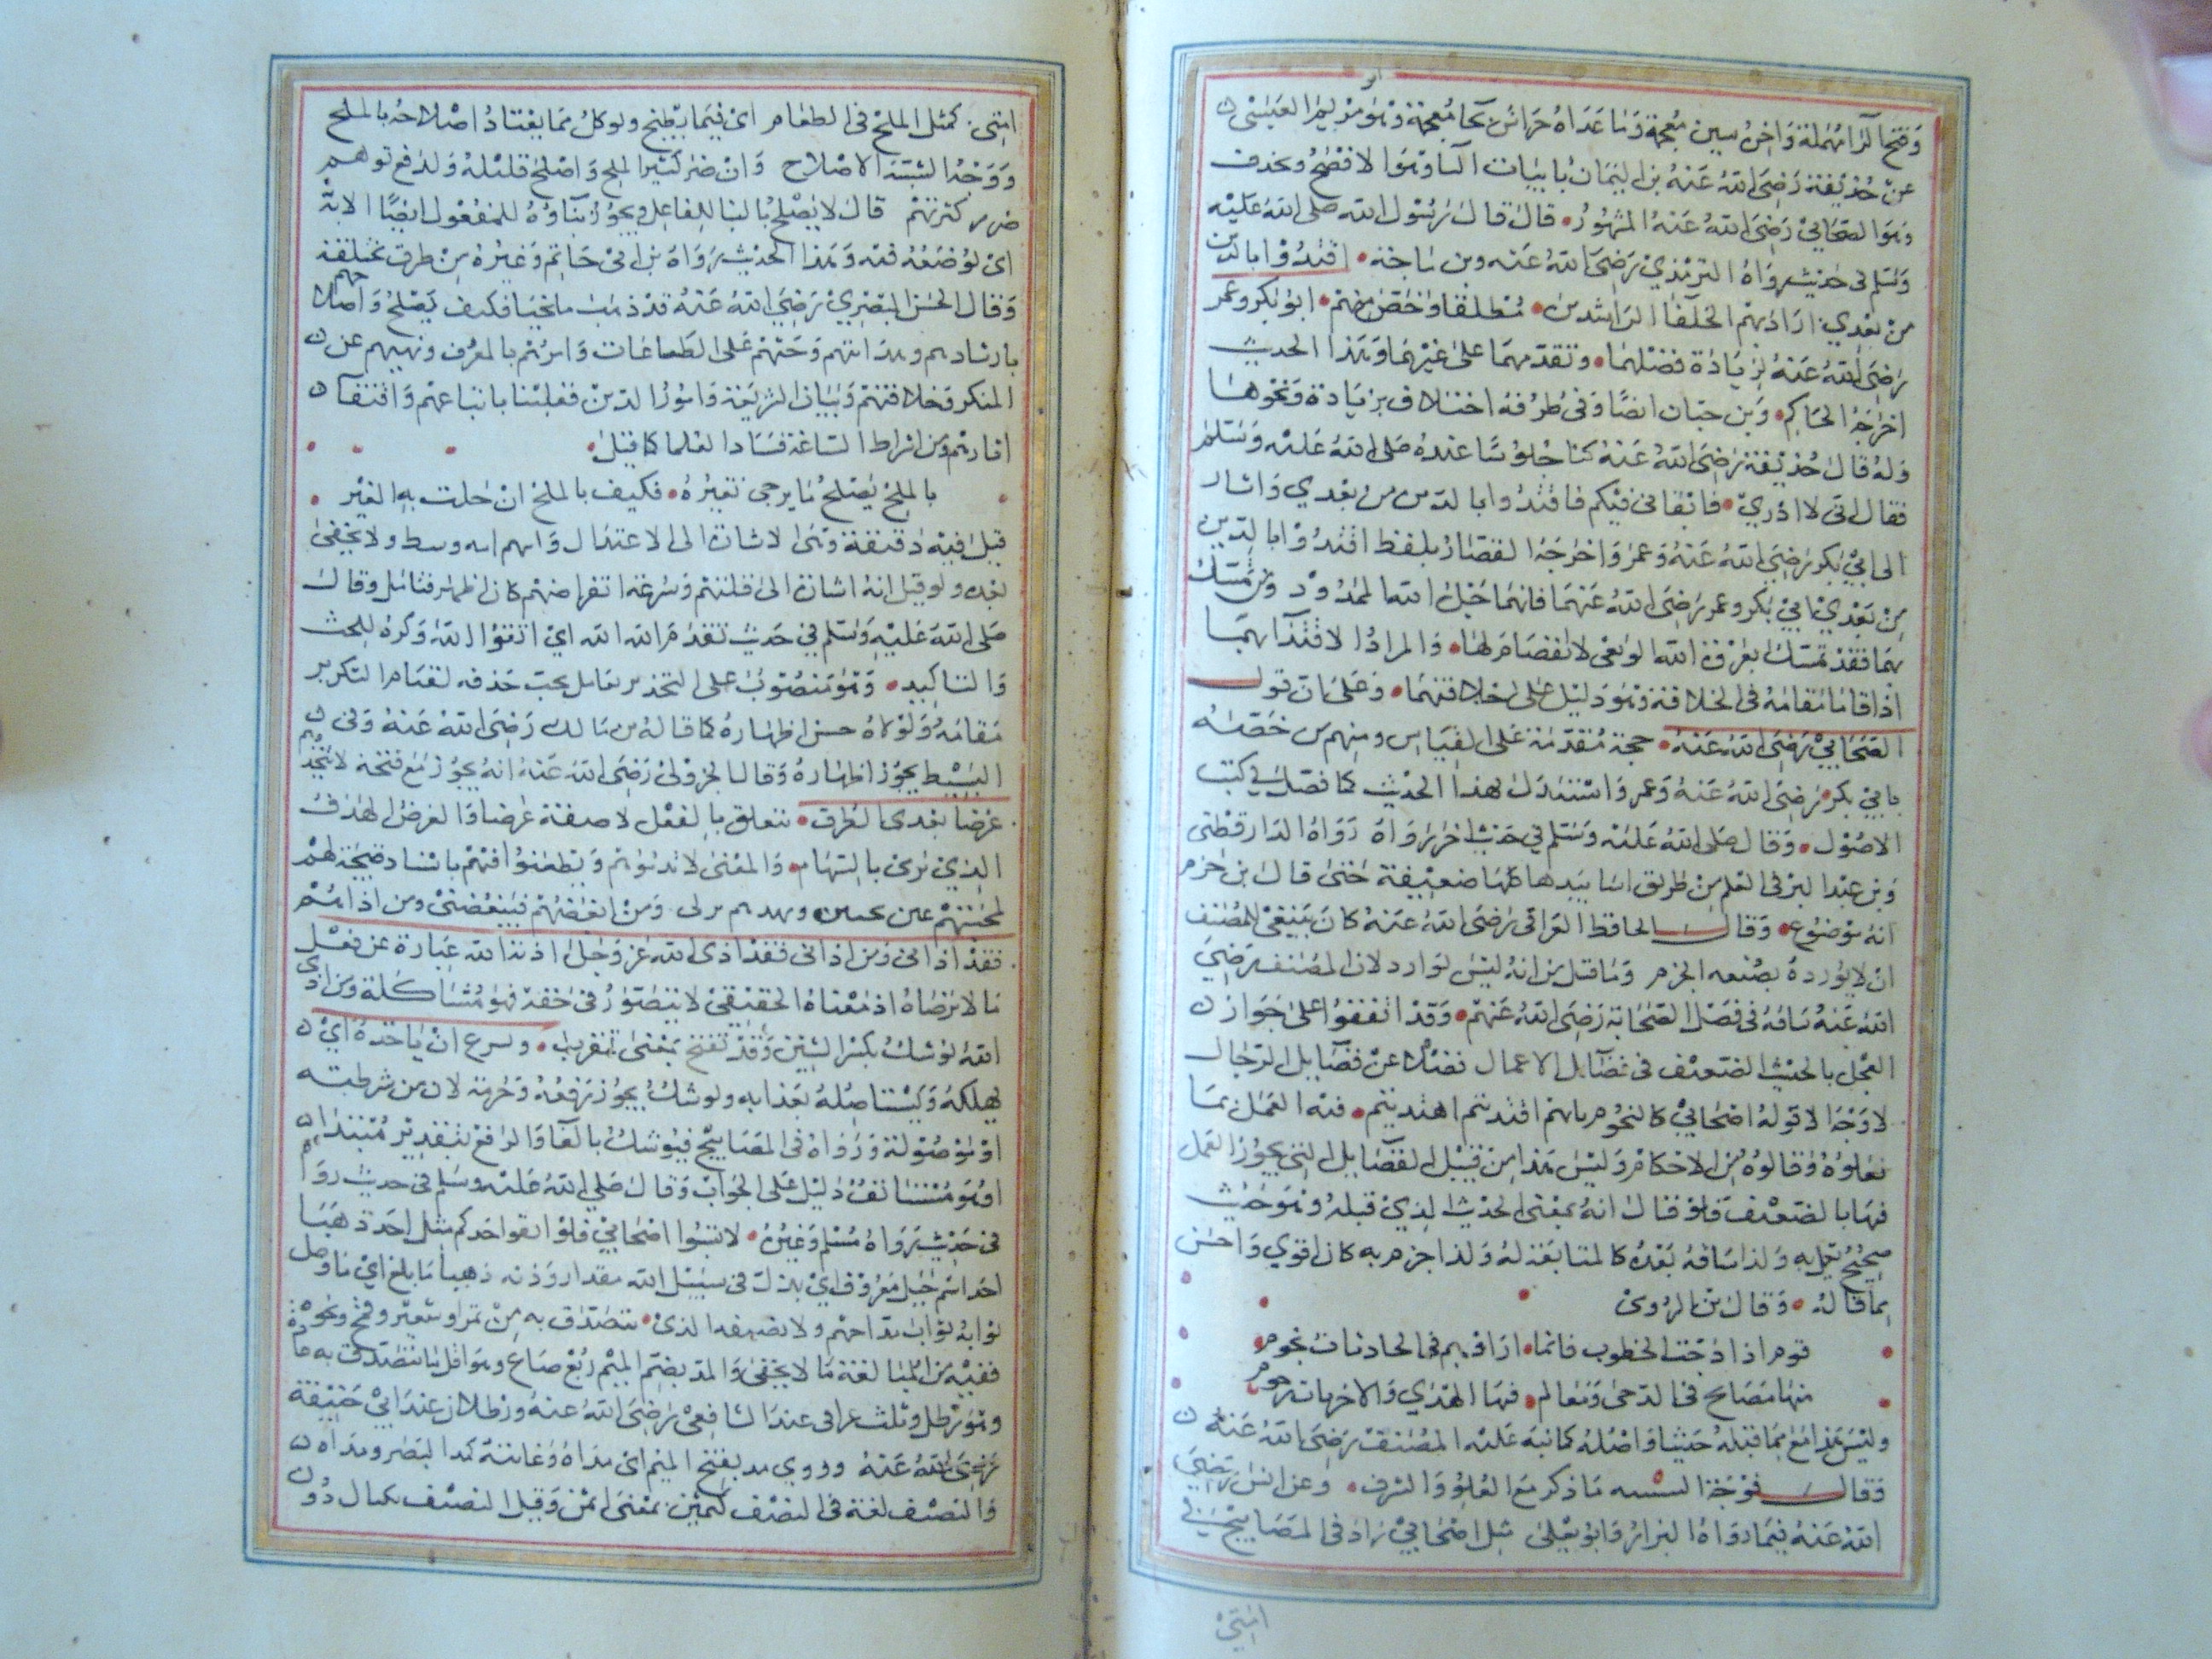 وفتح الرا مهملة واخره سين معجمة وما عداه حراش بحا معجمة وهو من العبسى
عن حذيفة رضى الله عنه بن اليمان باثبات اليا وهو الافصح وبحذف
وهو الصحابي رضى الله عنه المشهور قال قال رسول الله صلى الله عليه
وسلم فى حديث رواه الترمذي رضى الله عنه وبن ماجة اقتدوا بالذين
من بعدي اراد بهم الخلفا الراشدين مطلقا وخص منهم ابو بكر وعمر
رضى الله عنه لزيادة فضلهما وتقدمهما على غيرهما وهذا الحديث
اخرجه الحاكم وبن حبان ايضا وفى طرقه اختلاف بزيادة ونحوها
وله قال حذيفة رضى الله عنه كنا جلوسا عنده صلى الله عليه وسلم
فقال انى لا ادري ما بقائى فيكم فاقتدوا بالذين من بعدي واشار
الى ابي بكر رضى الله عنه وعمر واخرجه القصار بلفظ اقتدوا بالذين
من بعدي ابي بكر وعمر رضى الله عنهما فانهما حبل الله الممدود ومن تمسك
بهما فقد تمسك بعروة الله الوثقى لا انفصام لها والمراد الاقتدا بهما
اذا قاما مقامه فى الخلافة وهو دليل على خلافتهما وعلى ان قول
الصحابي رضى الله عنه حجة مقدمة على القياس ومنهم من خصه
بابي بكر رضى الله عنه وعمر واستدل بهذا الحديث كما فصل فى كتب
الاصول وقال صلى الله عليه وسلم في حديث اخر رواه الدارقطنى
وبن عبد البر فى العلم من طريق اسانيدها كلها ضعيفة حتى قال بن حزم
انه موضوع وقال الحافظ العراقى رضى الله عنه كان ينبغى للمصنف
ان لا يورده بصيغه الجزم وما قيل من انه ليس بوارد لان المصنف رضى
الله عنه ساقه فى فضل الصحابة رضى الله عنهم وقد اتفقوا على جواز
العمل بالحديث الضعيف فى فضآيل الاعمال فضلا عن فضآيل الرجال
لا وجه له لان قوله اصحابي كالنجوم بايهم اقتديتم اهتديتم فيه العمل بما
فعلوه وقالوه من الاحكام وليس هذا من قبيل الفضآيل التى يجوز العمل
فيها بالضعيف فلو قال انه بمعنى الحديث الذي قبله وهو حديث
صحيح يعمل به ولذا ساقه بعده كالمتابعة له ولذا جزم به كان اقوي واحسن
مما قاله وقال بن الرومى
قوم اذا دجت الخطوب فانما اراؤهم فى الحادثات نجوم
منها مصابح فى الدجى ومعالم فيها الهدي والاخريات رجوم
وليس هذا مع ما قبله حديثا واحدا كما نبه عليه المصنف رضى الله عنه
وقال فوجه الشبه ما ذكر مع العلو والشرف وعن انس رضى
الله عنه فيما رواه البزار وابو يعلى مثل اصحابي زاد فى المصابيح فى
امتي
امتى كمثل الملح فى الطعام اى فيما يطبخ ويوكل مما يعتاد اصلاحه بالملح
ووجه الشبه الاصلاح وان ضر كثير الملح واصلح قليله ولدفع توهم
ضرر كثرتهم قال لا يصلح بالبنا للفاعل ويجوز بناؤه للمفعول ايضا الا به
اى بوضعه فيه وهذا الحديث رواه بن ابى حاتم وغيره من طرق مختلفة
وقال الحسن البصري رضى الله عنه قد ذهب ملحنا فكيف يصلح واصلاحهم
بارشادهم وهدايتهم وحثهم على الطاعات وامرهم بالمعرف ونهيهم عن
المنكر وخلافتهم وبيان الشريعة وامور الدين فعلينا باتباعهم واقتفآ
اثارهم ومن اشراط الساعة فساد العلما كما قيل
بالملح يصلح ما يرجى تغيره فكيف بالملح ان حلت به الغير
قيل فيه دقيقة وهى الاشارة الى الاعتدال وانهم امه وسط ولا يخفى
بعده ولو قيل انه اشارة الى قلتهم وسرعة انقراضهم كان اظهر فتامل وقال
صلى الله عليه وسلم في حديث تقدم الله الله اي اتقوا الله وكرره للحث
والتاكيد وهو منصوب على التحذير بعامل يجب حذفه لقيام التكرير
مقامه ولولاه حسن اظهاره كما قاله بن مالك رضى الله عنه وفى
البسيط يجوز اظهاره وقال الجزولى رضى الله عنه انه يجوز مع قبحه لا تتخذوهم
غرضا بعدى الظرف متعلق بالفعل لا صفة غرضا والغرض الهدف
الذي يرمى بالسهام والمعنى لا تذموهم وتطعنوا فيهم باشيا قبيحة لهم
فمن احبهم فبحبي احبهم ومن ابغضهم فببغضى ومن اذاهم
فقد اذانى ومن اذانى فقد اذى الله عز وجل اذية الله عبارة عن فعل
ما لا يرضاه اذ معناه الحقيقى لا يتصور فى حقه فهو مشاكلة ومن اذى
الله يوشك بكسر الشين وقد تفتح بمعنى يقرب ويسرع ان ياخذه اي
يهلكه ويستاصله بعذابه ويوشك يجوز رفعه وجزمه لان من شرطيه
او موصولة ورواه فى المصابيح فيوشك بالفا والرفع بتقدير مبتدا
او هو مستانف دليل على الجواب وقال صلي الله عليه وسلم فى حديث
فى حديث رواه مسلم وغيره لا تسبوا اصحابي فلو انفق احدكم مثل احد ذهبا
احد اسم جبل معروف اي بذل فى سبيل الله مقدار وزنه ذهبا ما بلغ اي ما وصل
ثوابه ثواب مد احدهم ولا نصيفه الذى يتصدق به من تمر او شعير وقمح ونحوه
ففيه من المبالغة ما لا يخفى والمد بضم الميم ربع صاع وهو اقل ما يتصدق به عادة
وهو رطل وثلث عراقى عند الشافعى رضى الله عنه ورطلان عند ابي حنيفة
رضى الله عنه وروي مد بفتح الميم اى مداه وغايته كمد البصر ومداه
والنصيف لغة فى النصف كثمين بمعنى ثمن وقيل النصيف مكيال دون